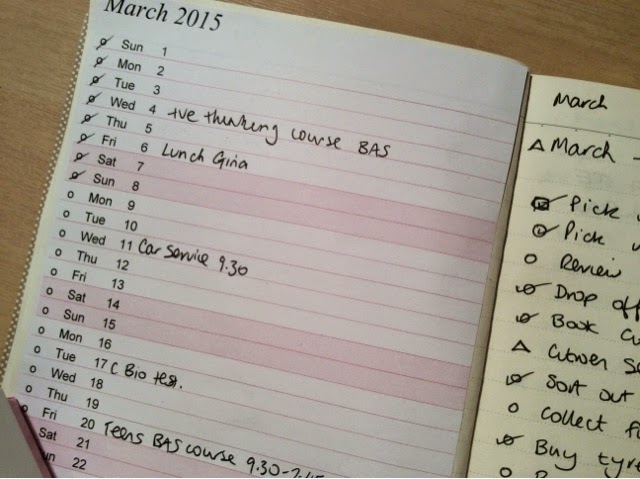 March 2015
Sun 1
Mon 2
Tue 3
Wed 4 +ve thinking course BAS
Thu 5
Fri 6 Lunch Gina
Sat 7
Sun 8
Mon 9
Tue 10
Wed 11 Car Service 9.30
Thu 12
Fri 13
Sat 14
Sun 15
Mon 16
Tue 17 C Bio test.
Wed 18
Thu 19
Fri 20 Teens BAS course 9.30-
Sat 21
un 22
March
March -
Pick
Pick
Review
Drop off
Book
Sort out
Collect
Buy tyre